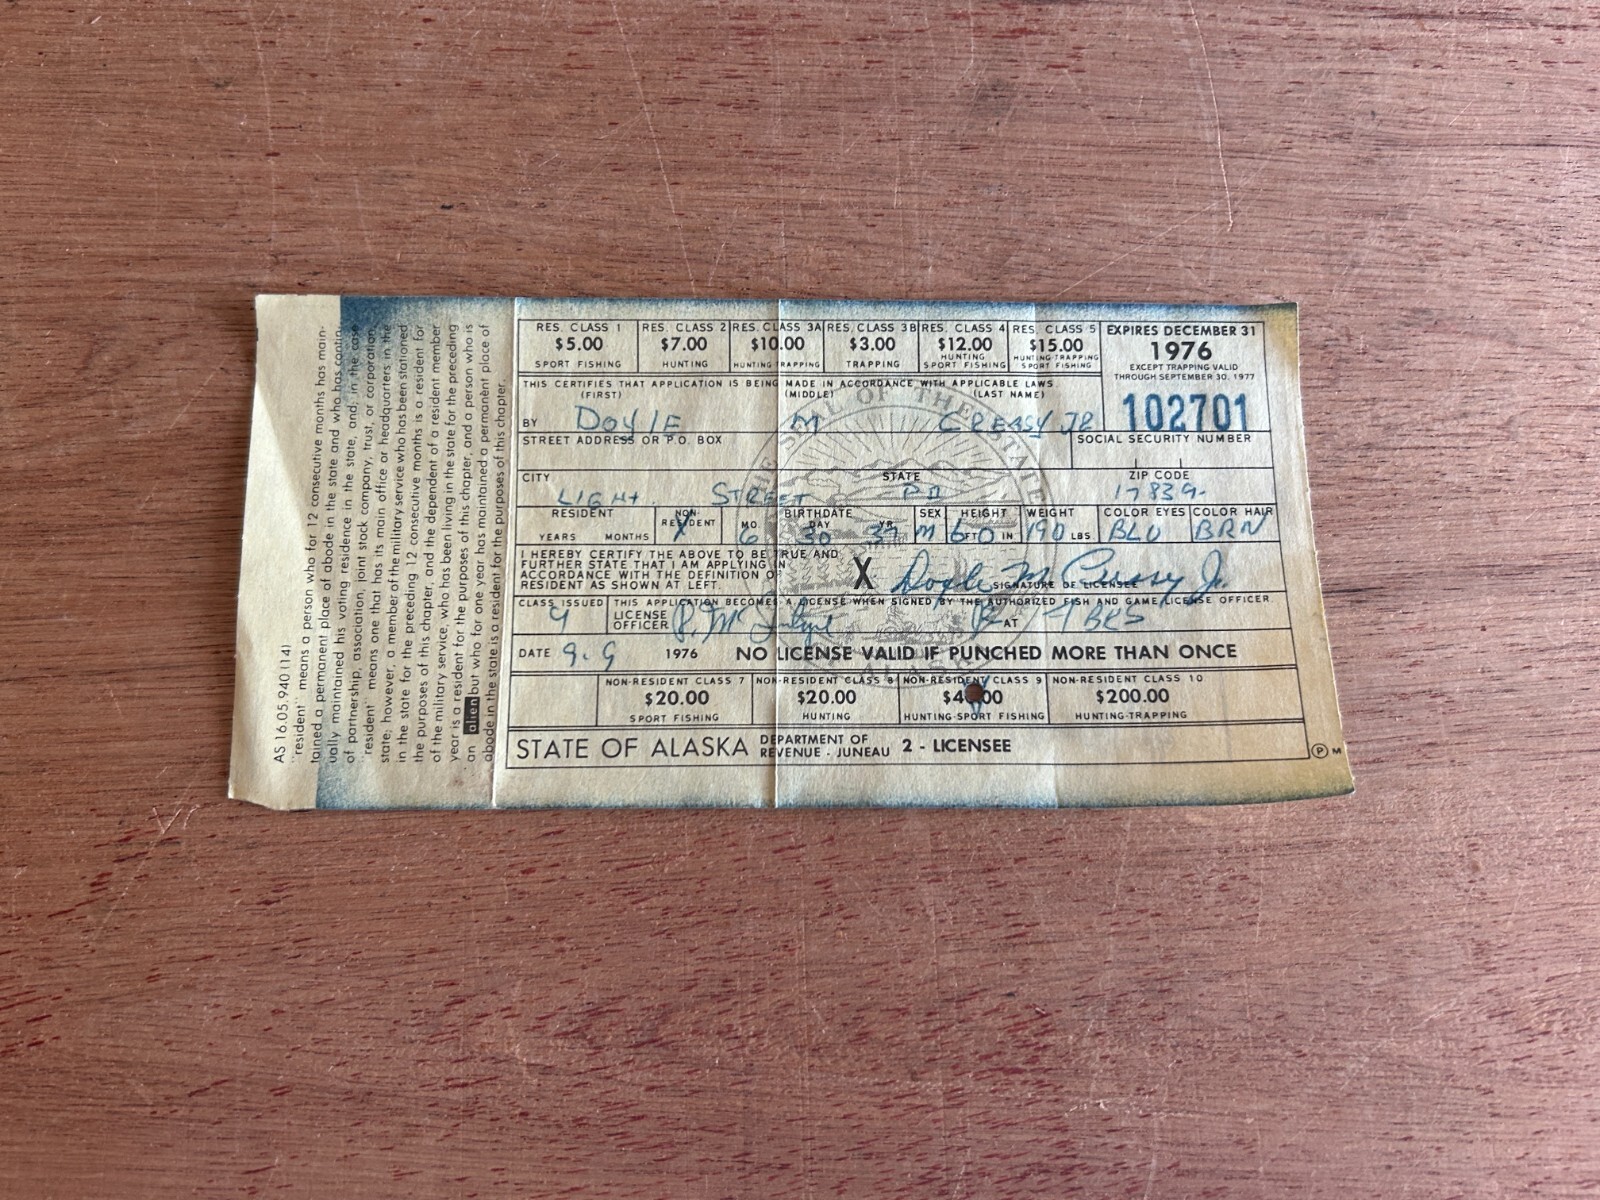 AS 16.05.940 (14)
"resident" means a person who for 12 consecutive months has main-
tained a permanent place of abode in the state and who has contin-
ually maintained his voting residence in the state, and, in the case
of partnership, association, joint stock company, trust, or corporation,
"resident" means one that has its main office or headquarters in the
state; however, a member of the military service who has been stationed
in the state for the preceding 12 consecutive months is a resident for
the purposes of this chapter, and the dependent of a resident member
of the military service, who has been living in the state for the preceding
year is a resident for the purposes of this chapter, and a person who is
an alien but who for one year has maintained a permanent place of
abode in the state is a resident for the purposes of this chapter.
RES. CLASS 1 RES. CLASS 2 RES. CLASS 3A RES. CLASS 3B RES. CLASS 4 RES. CLASS 5 EXPIRES DECEMBER 31
$5.00 $7.00 $10.00 $3.00 $12.00 $15.00 1976
SPORT FISHING HUNTING HUNTING TRAPPING TRAPPING HUNTING SPORT FISHING HUNTING-TRAPPING SPORT FISHING EXCEPT TRAPPING VALID
THROUGH SEPTEMBER 30, 1977
THIS CERTIFIES THAT APPLICATION IS BEING MADE IN ACCORDANCE WITH APPLICABLE LAWS
(FIRST) (MIDDLE) (LAST NAME)
BY DOYLE M CREASY JR 102701
STREET ADDRESS OR P.O. BOX SOCIAL SECURITY NUMBER
CITY STATE ZIP CODE
LIGHT STREET PA 17839
RESIDENT NON RESIDENT BIRTHDATE SEX HEIGHT WEIGHT COLOR EYES COLOR HAIR
YEARS MONTHS X MO. 6 DAY 30 YR. 37 M 6 FT 0 IN 190 LBS BLU BRN
I HEREBY CERTIFY THE ABOVE TO BE TRUE AND
FURTHER STATE THAT I AM APPLYING IN
ACCORDANCE WITH THE DEFINITION OF
RESIDENT AS SHOWN AT LEFT
X Doyle M Creasy Jr.
SIGNATURE OF LICENSEE
CLASS ISSUED THIS APPLICATION BECOMES A LICENSE WHEN SIGNED BY THE AUTHORIZED FISH AND GAME LICENSE OFFICER
9 LICENSE OFFICER AT
DATE 9-9 1976 NO LICENSE VALID IF PUNCHED MORE THAN ONCE
NON-RESIDENT CLASS 7 NON-RESIDENT CLASS 8 NON-RESIDENT CLASS 9 NON-RESIDENT CLASS 10
$20.00 $20.00 $200.00
SPORT FISHING HUNTING HUNTING-SPORT FISHING HUNTING-TRAPPING
STATE OF ALASKA DEPARTMENT OF REVENUE - JUNEAU 2 - LICENSEE
THE SEAL OF THE STATE OF ALASKA